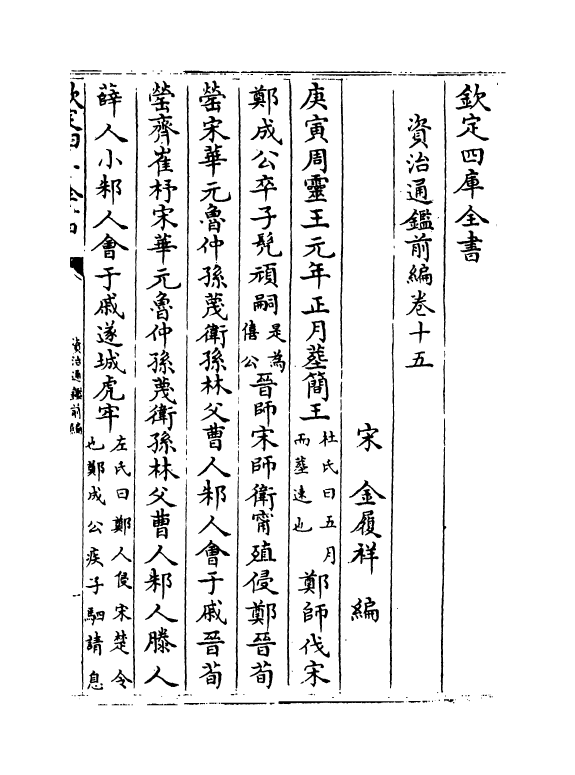 欽定四庫全書
資治通鑑前編卷十五
宋 金履祥 編
庚寅周靈王元年正月葬簡王杜氏曰五月而葬速也鄭師伐宋
鄭成公卒子髠頑嗣是為僖公晉師宋師衛甯殖侵鄭晉荀
罃宋華元魯仲孫蔑衛孫林父曹人邾人會于戚晉荀
罃齊崔杼宋華元魯仲孫蔑衛孫林父曹人邾人滕人
薛人小邾人會于戚遂城虎牢左氏曰鄭人侵宋楚令也鄭成公疾子駟請息
欽定四庫全書
資治通鑑前編
一